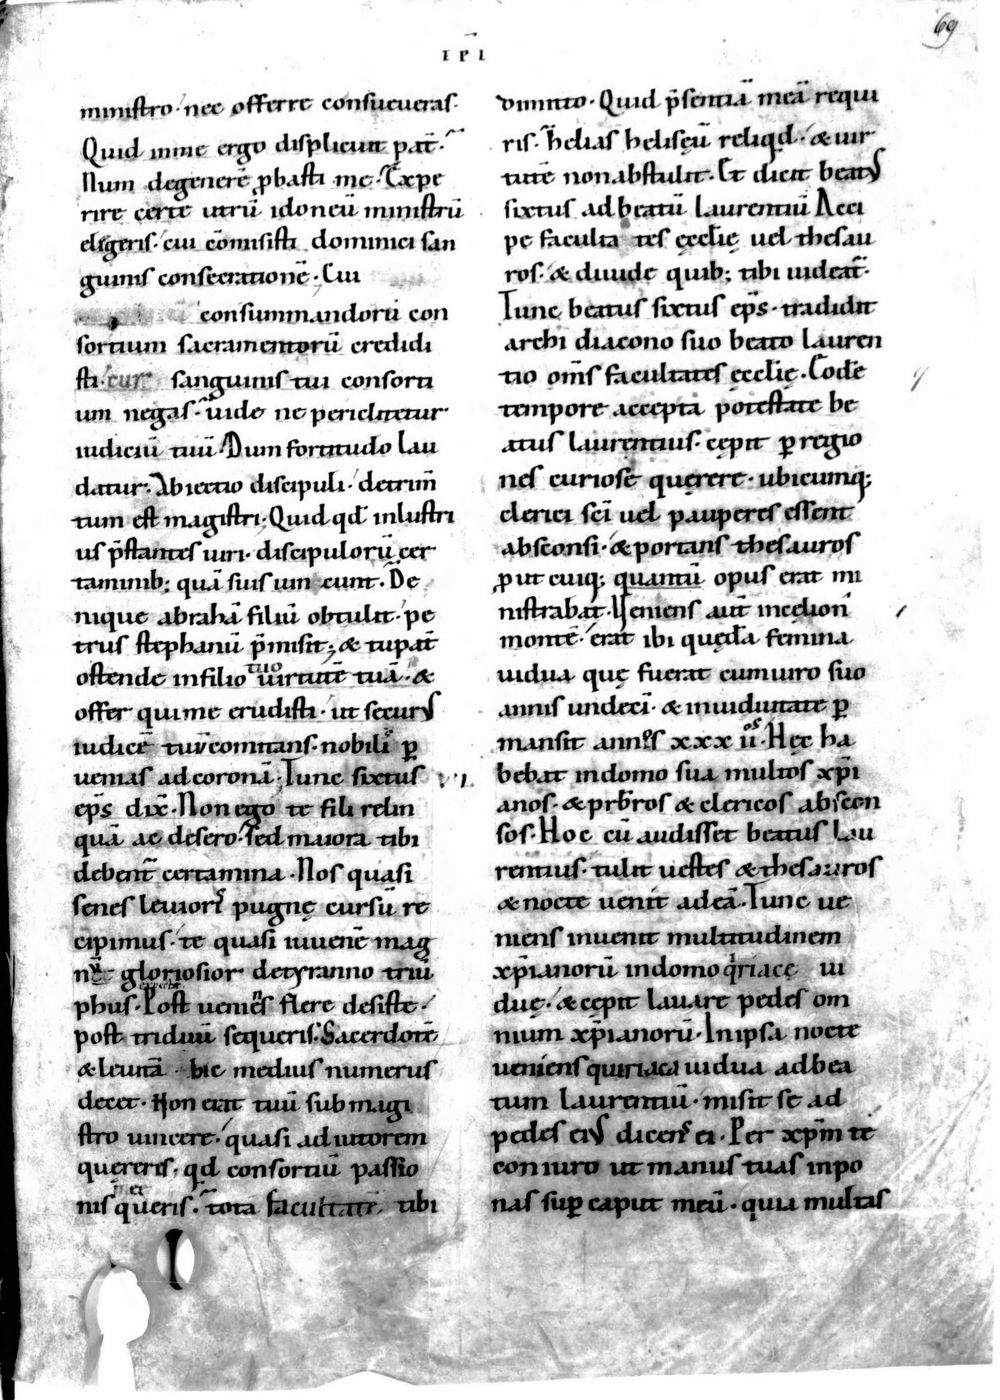 69
IPI
ministro· nec offerre consueueras·
Quid in me ergo displicuit pat̄·
Num degenerē ꝓbasti me· Expe
rire certe utrū idoneū ministrū
eligeris· cui cōmisisti dominici san
guinis consecrationē· Cui
consummandorū con
sortium sacramentorū credidi
sti· cur sanguinis tui consorti
um negas· uide ne periclitetur
iudiciū tuū· Dum fortitudo lau
datur· Abiectio discipuli· detrim̄
tum est magistri; Quid qd̄ inlustri
us p̄stantes uiri· discipulorū cer
taminib; quā suis uin cunt· De
nique abrahā filiū obtulit· pe
trus stephanū p̄misit; & tu pat̄
ostende in filio tuo uirtutē tuā· &
offer qui me erudisti· ut securꝰ
iudicē tuū comitans· nobili ꝑ
uenias ad coronā· Tunc sixtus
ep̄s dix̄· Non ego te fili relin
quā ac desero· sed maiora tibi
debent̄ certamina· Nos quasi
senes leuiorꝭ pugnę cursū re
cipimus· te quasi iuuenē mag
nꝰ gloriosior de tyranno triū
phus· Post ueniēs flere desiste·
post triduū sequeris· Sacerdotē
& leuitā hic medius numerus
decet· Non erat tuū sub magi
stro uincere· quasi adiutorem
quereris· qd̄ consortiū passio
nis queris· tota facultatē tibi
dimitto· Quid p̄sentiā meā requi
ris· helias heliseū reliqd̄· & uir
tutē non abstulit· Et dicit beatꝰ
sixtus ad beatū laurentiū Acci
pe faculta tes ęcclię uel thesau
ros· & diuide quib; tibi uideat̄·
Tunc beatus sixtus ep̄s· tradidit
archi diacono suo beato lauren
tio om̄s facultates ęcclię· Eodē
tempore accepta potestate be
atus laurentius· cępit ꝑ regio
nes curiose querere· ubicumq;
clerici sc̄i uel pauperes essent
absconsi· & portans thesauros
ꝓut cuiq; quantū opus erat mi
nistrabat· Ueniens aut̄ in cęlion̄
montē· erat ibi quęda femina
uidua quę fuerat cum uiro suo
annis undeci· & in uiduitate ꝑ
mansit annos xxx ii os· Hęc ha
bebat in domo sua multos xp̄i
anos· & prb̄ros & clericos abscon
sos· Hoc cū audisset beatus lau
rentius· tulit uestes & thesauros
& nocte uenit ad eā· Tunc ue
niens inuenit multitudinem
xp̄ianorū in domo qⁱriacę ui
duę· & cępit lauare pedes om
nium xp̄ianorū· In ipsa nocte
ueniens quiriaca uidua ad bea
tum laurentiū· misit se ad
pedes eiꝰ dicens̄ ei· Per xp̄m te
coniuro ut manus tuas inpo
nas suꝑ caput meū· quia multas